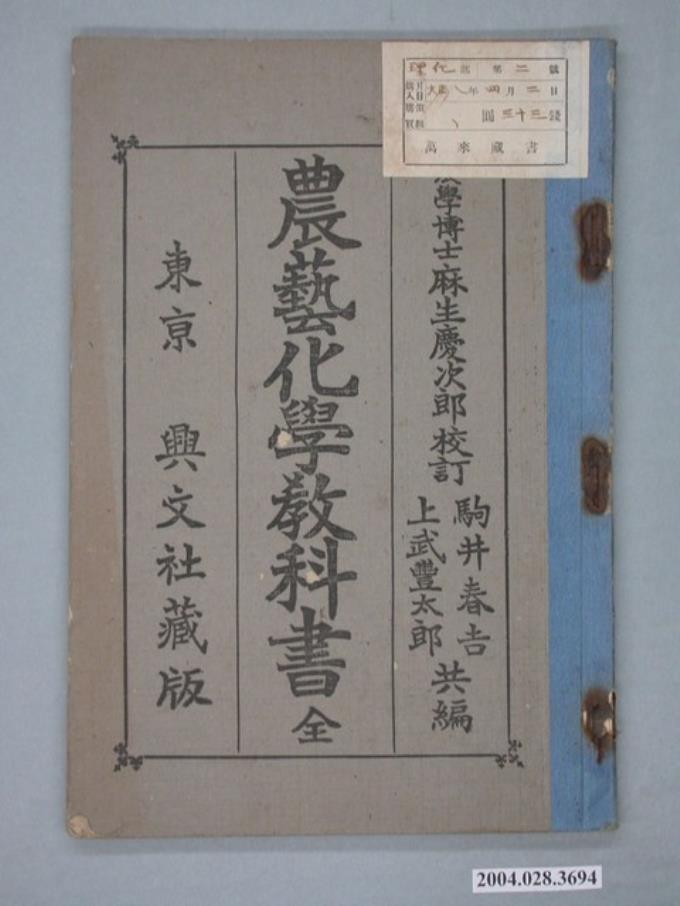 理化部 第二號
購入月日 大正八年四月二日
圓三十三錢
萬來藏書
學博士麻生慶次郎校訂
駒井春吉
上武豐太郎
共編
農藝化學教科書 全
東京 興文社藏版
2004.028.3694